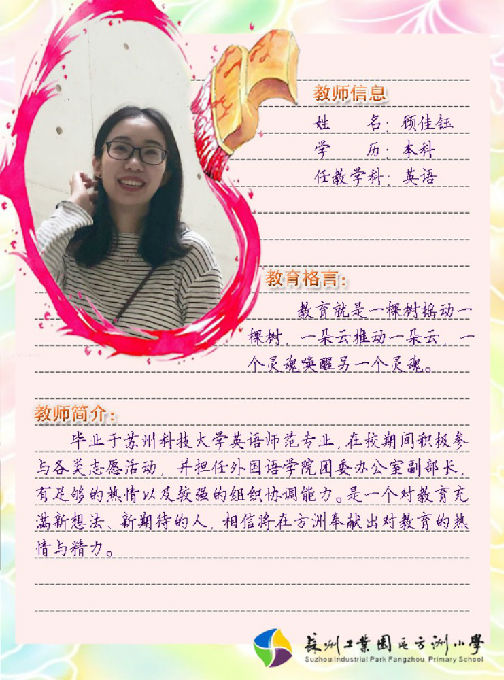 教师信息
姓 名：顾佳钰
学 历：本科
任教学科：英语
教育格言：
教育就是一棵树摇动一
棵树，一朵云推动一朵云，一
个灵魂唤醒另一个灵魂。
教师简介：
毕业于苏州科技大学英语师范专业，在校期间积极参
与各类志愿活动，并担任外国语学院团委办公室副部长，
有足够的热情以及较强的组织协调能力。是一个对教育充
满新想法、新期待的人，相信将在方洲奉献出对教育的热
情与精力。
苏州工业园区方洲小学
Suzhou Industrial Park Fangzhou Primary School